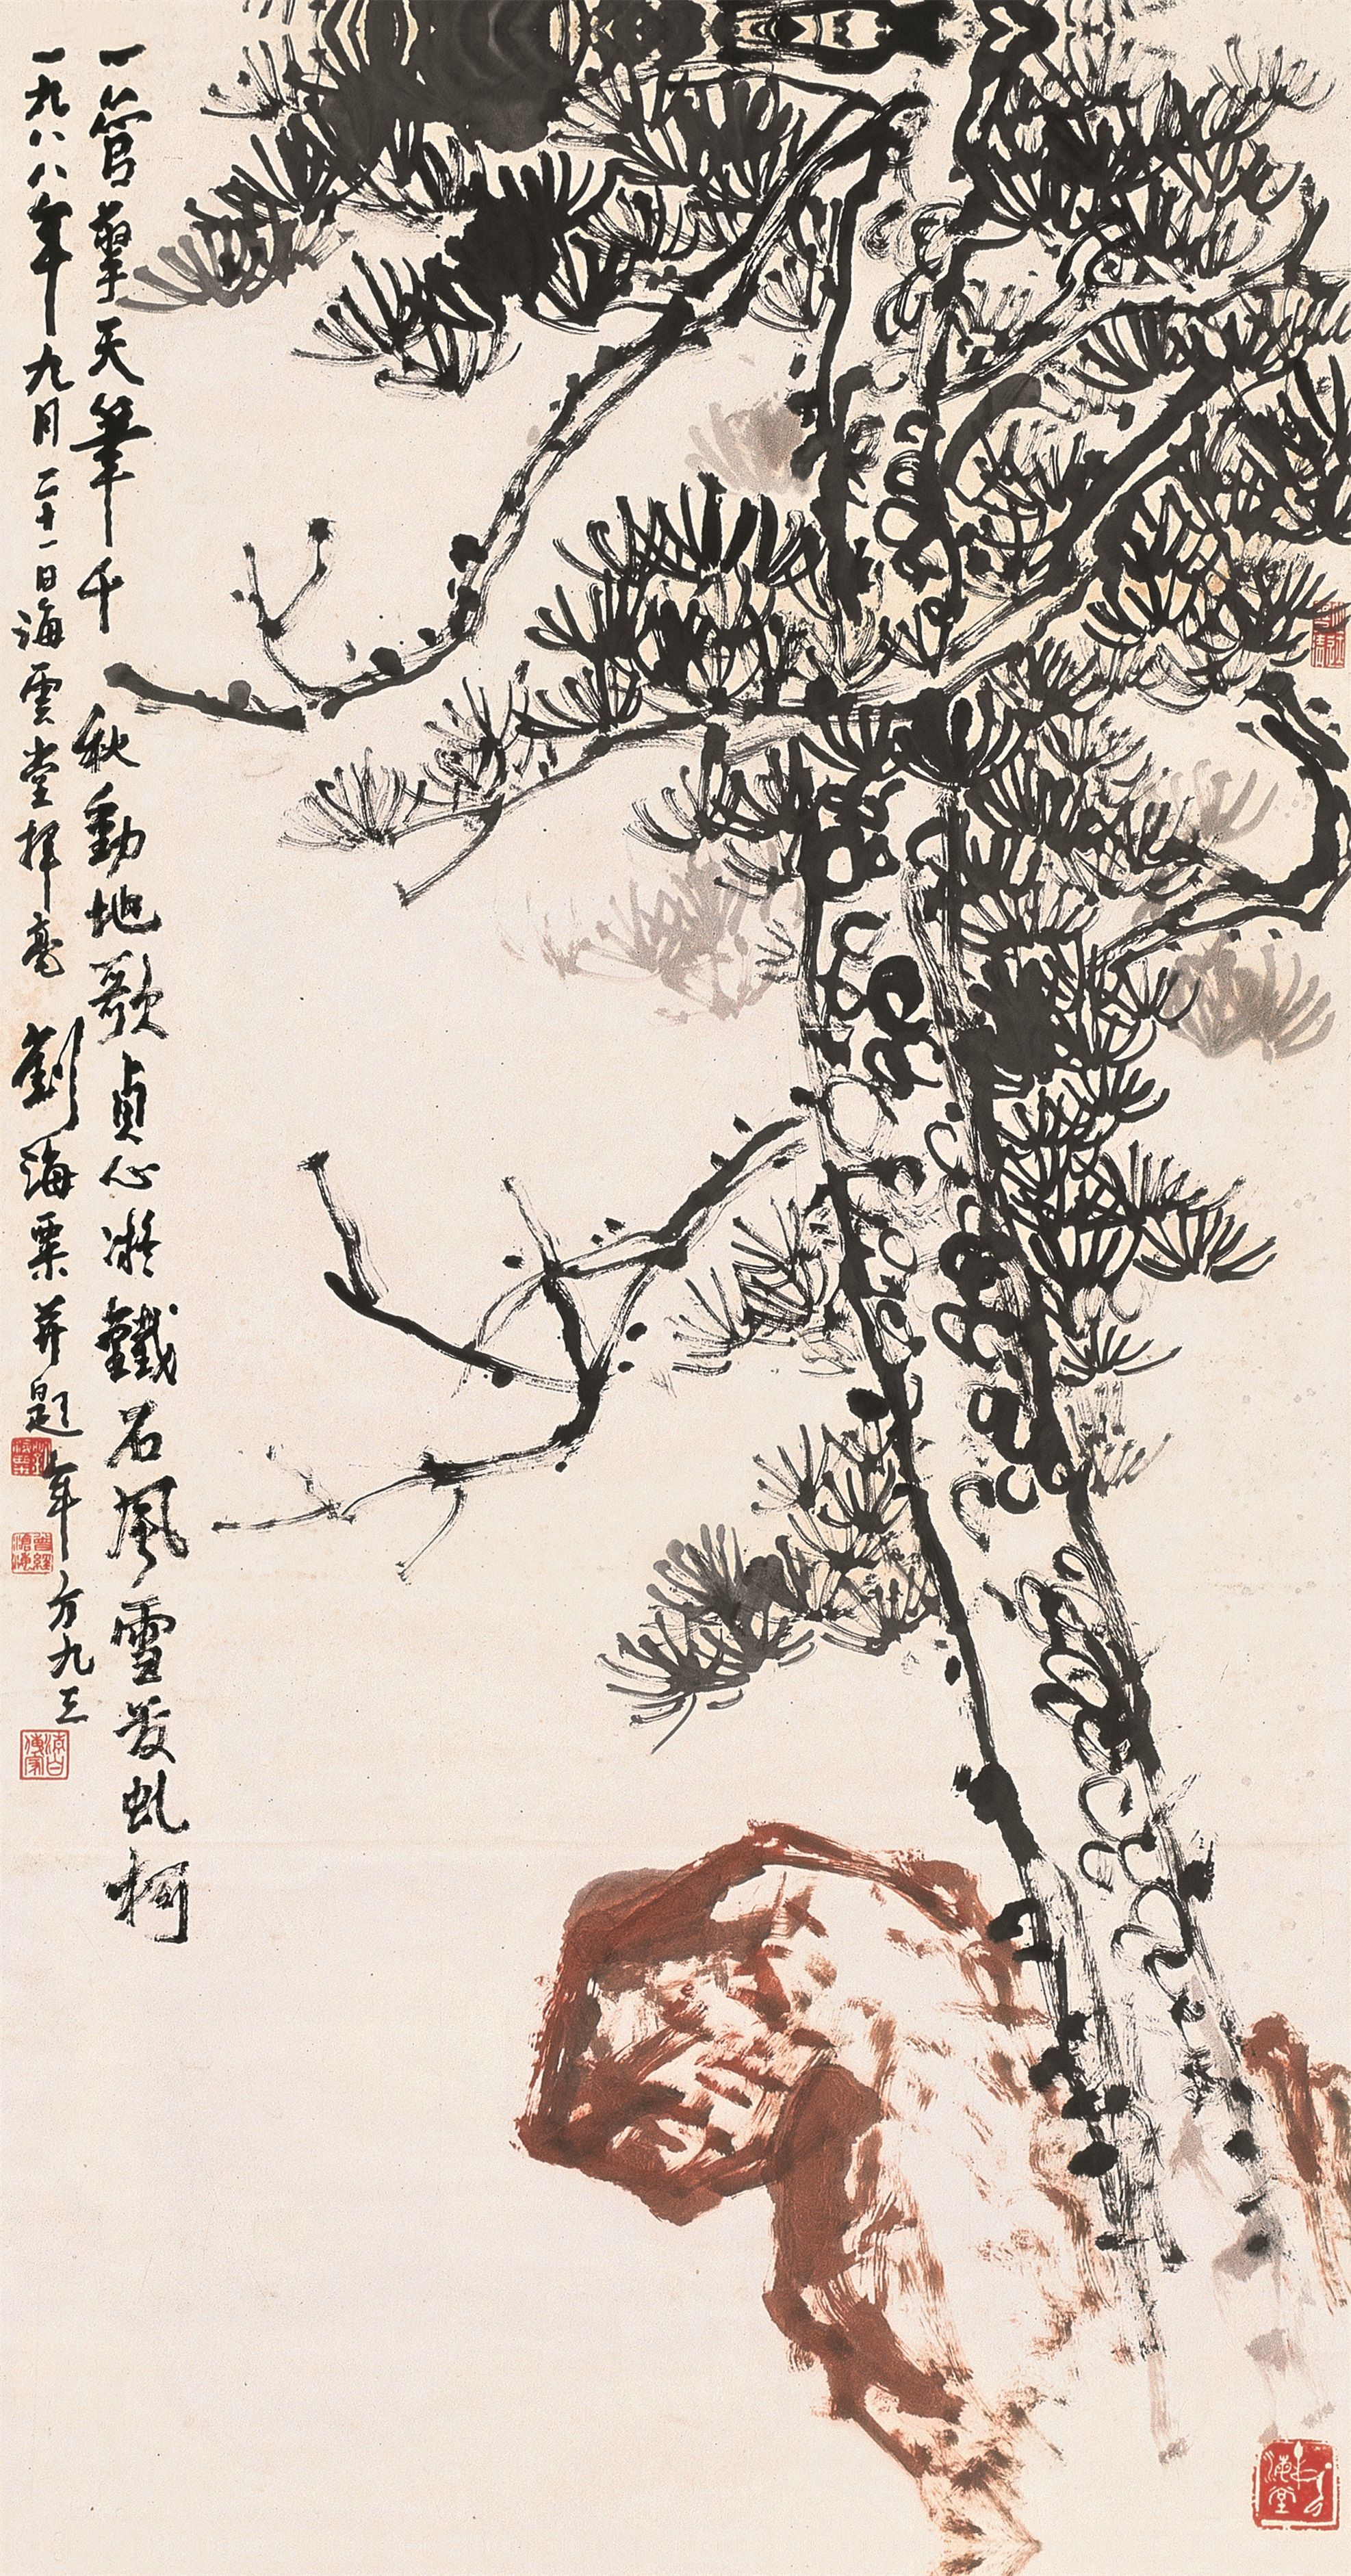 一管擎天筆千秋動地歌貞心凝鐵石風雪發虬柯
一九八八年九月二十一日海雲堂揮毫劉海粟并題年方九三
劉海粟
曾經滄海